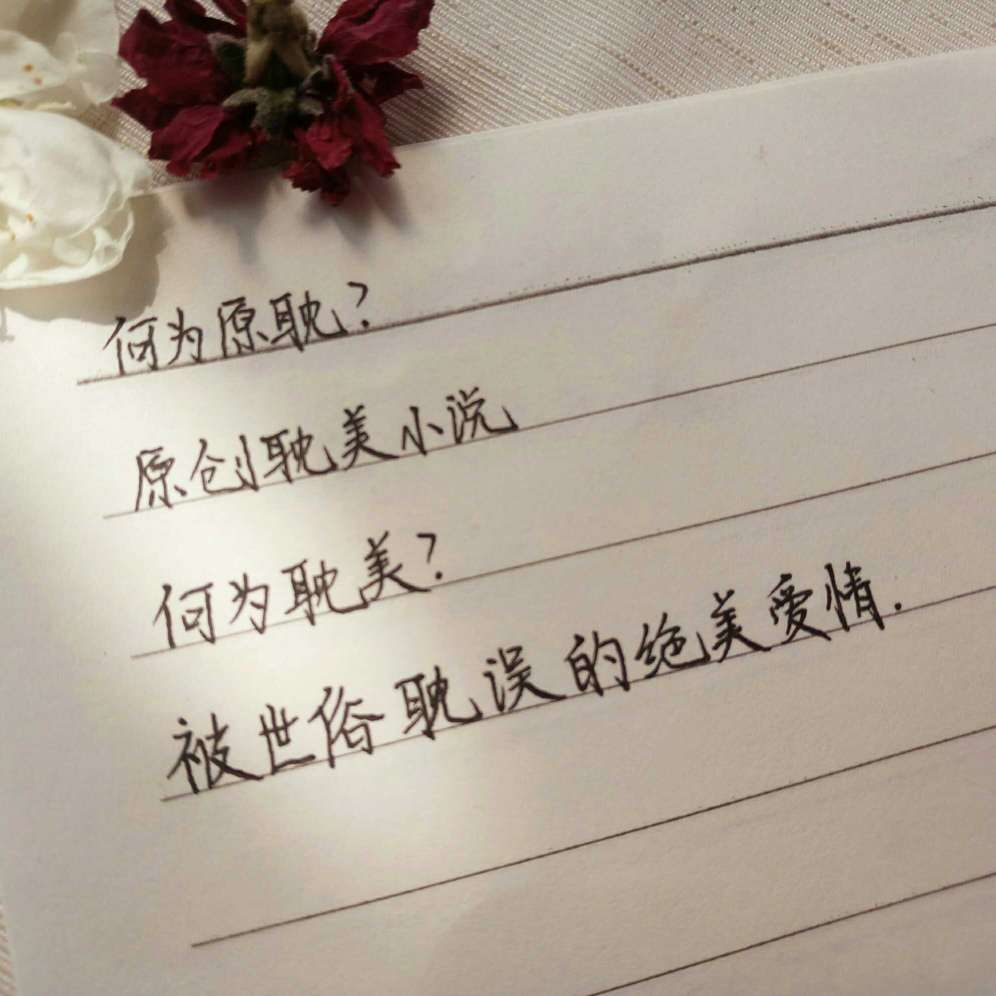 何为原耽?
原创耽美小说
何为耽美?
被世俗耽误的绝美爱情.